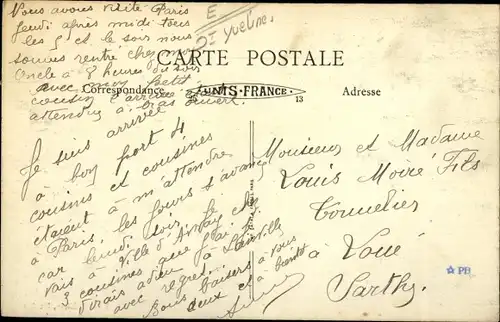 Vous avons visité Paris
jeudi après midi tous
les 5 et le soir nous
sommes rentré chez mon
oncle à 8 heures du soir
avec mon petit
cousin l'arrière
attendu à bras ouvert.
E
Dt Yvelines
CARTE POSTALE
Correspondance
UNIS-FRANCE
13
Adresse
Je suis arrivée
à bon port 4
cousins et cousines
étaient à m'attendre
à Paris, les jours s'avance
car lundi soir, je
vais à Ville d'Avray chez
3 cousines que
dirais adieu à
avec regret.
Bons baisers à vous
deux et à bientôt
Monsieur et Madame
Louis Moiré Fils
Tonnelier
à Loué
Sarthe.
PB